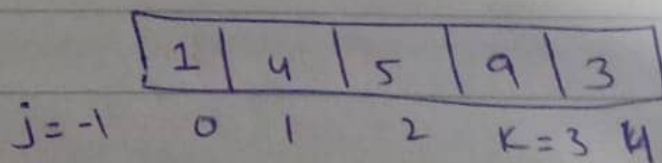 1 4 5 9 3
j = -1 0 1 2 K = 3 4